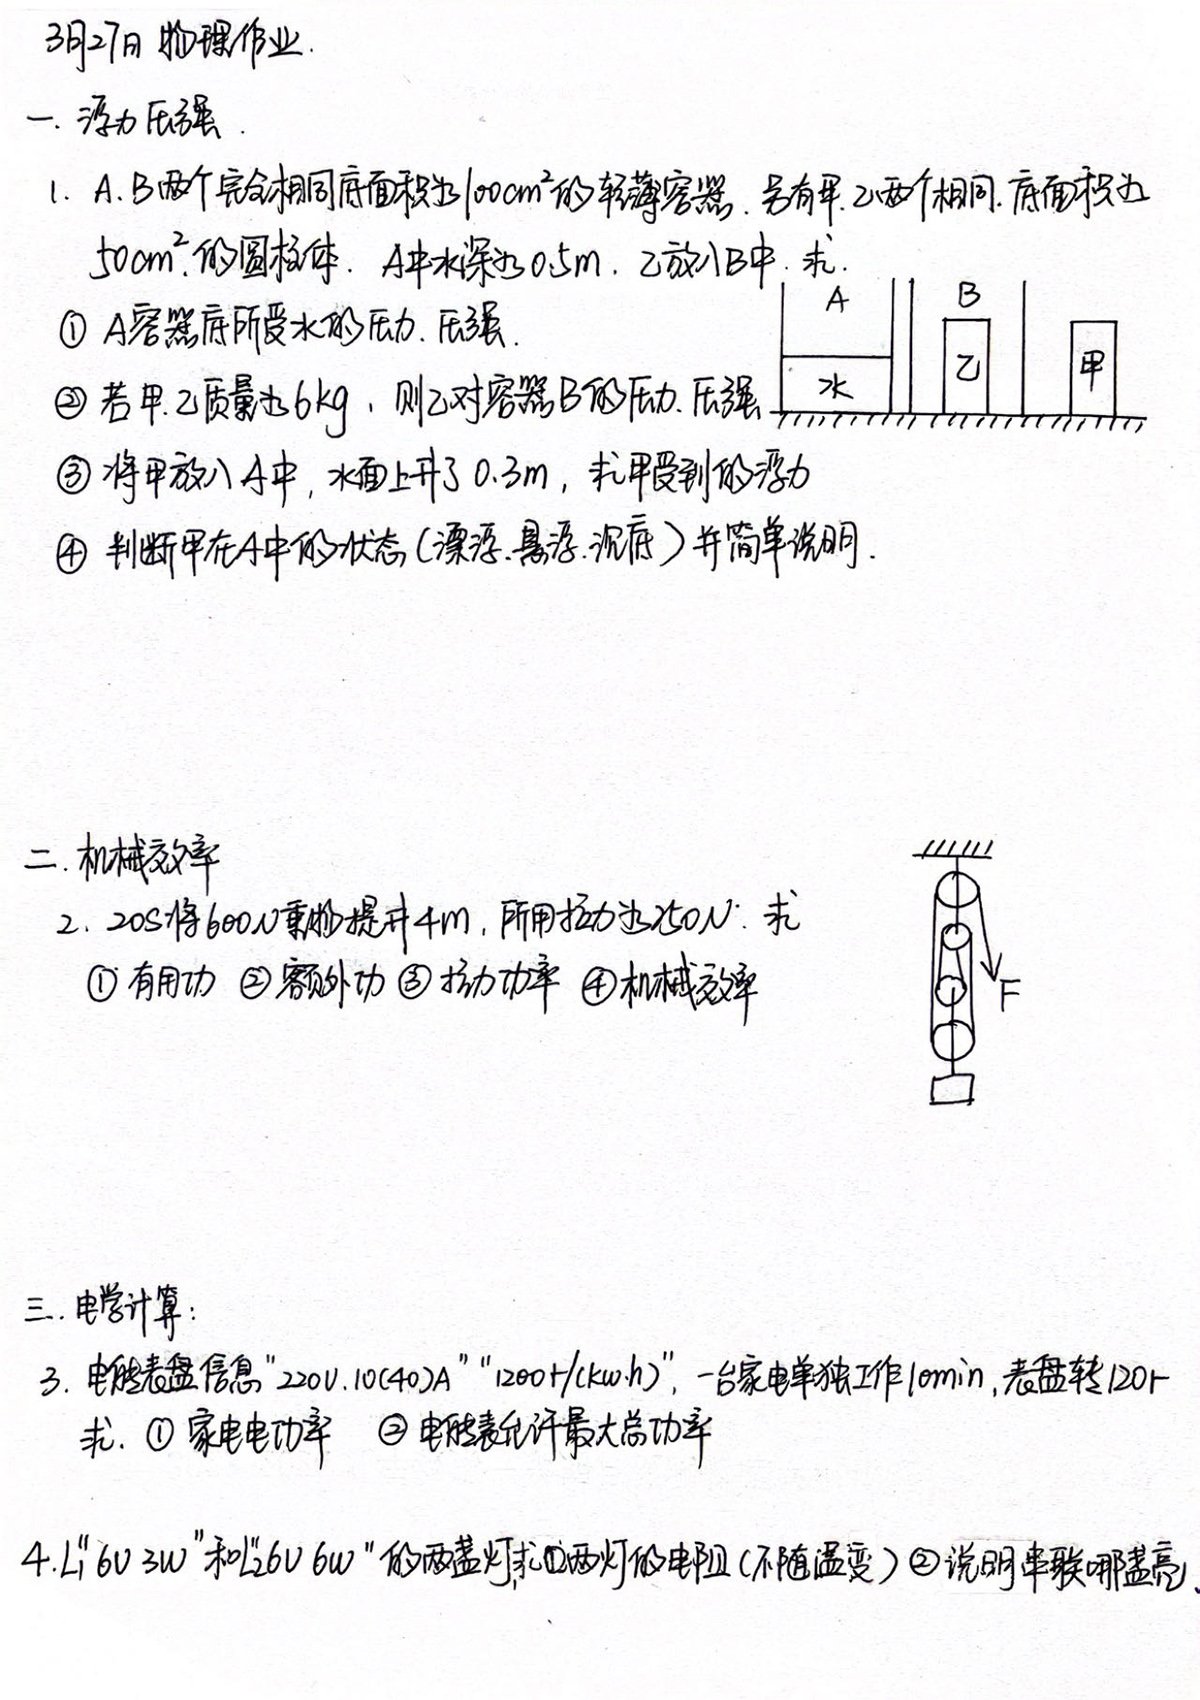 3月27日 物理作业.
一. 浮力压强.
1. A.B两个完全相同底面积为100cm²的轻薄容器. 另有甲.乙两个相同.底面积为
50cm².的圆柱体. A中水深为0.5m. 乙放入B中. 求.
① A容器底所受水的压力.压强.
② 若甲.乙质量为6kg, 则乙对容器B的压力.压强
③ 将甲放入A中, 水面上升了0.3m, 求甲受到的浮力
④ 判断甲在A中的状态(漂浮.悬浮.沉底)并简单说明.
A
水
B
乙
甲
二. 机械效率
2. 20S将600N重物提升4m, 所用拉力为250N. 求
① 有用功 ② 额外功 ③ 拉力功率 ④ 机械效率
F
三. 电学计算:
3. 电能表盘信息"220V.10(40)A" "1200r/(kw.h)", 一台家电单独工作10min,表盘转120r
求. ① 家电电功率 ② 电能表允许最大总功率
4. L₁"6V 3W"和L₂"6V 6W"的两盏灯,求①两灯的电阻(不随温变) ②说明串联哪盏亮.